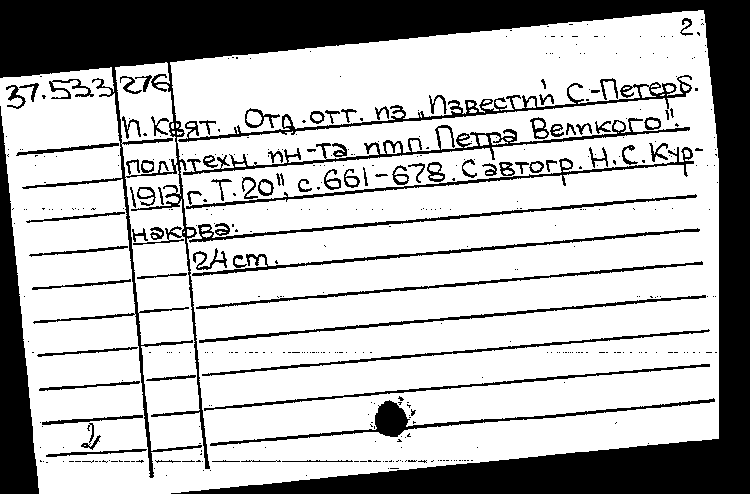 2.
37.533 276
П. Квят. „Отд. отт. из „Известий С.-Петерб.
политехн. ин-та имп. Петра Великого".
1913 г. Т. 20", с. 661-678. С автогр. Н. С. Кур-
накова.
24 cm.
2